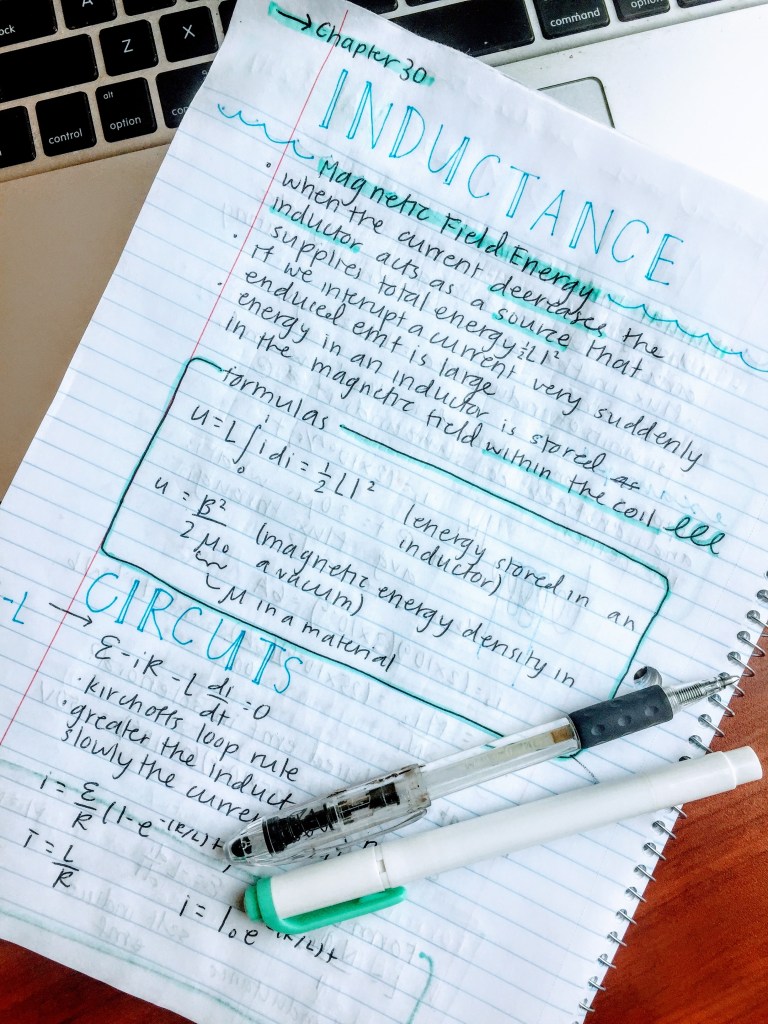 A
Z
X
alt
control
option
command
→ Chapter 30
INDUCTANCE
Magnetic Field Energy
· when the current decreases the
inductor acts as a source that
supplies total energy ½LI²
· if we interupt a current very suddenly
enduced emf is large
· energy in an inductor is stored
in the magnetic field within the coil
formulas
U=L∫₀ⁱ i di = ½LI² (energy stored in an
inductor)
u = B²/2μ₀ (magnetic energy density in
a vacuum)
μ in a material
-L → CIRCUTS
ε-iR-L di/dt=0
· kirchoffs loop rule
· greater the induct
slowly the curre
i = ε/R (1-e^-(R/L)t
τ = L/R
i = I₀e (R/L)t